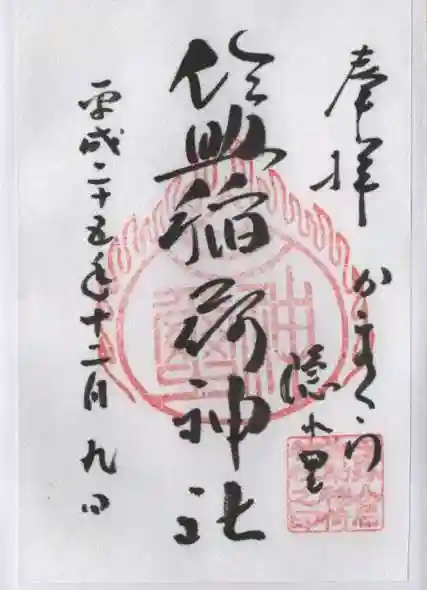 奉拝
かまくら
隠れ里
佐助稲荷神社
平成二十五年十二月九日